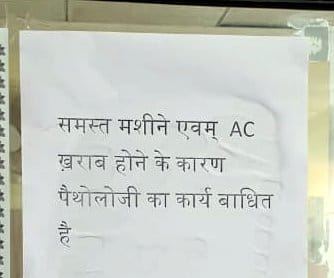 समस्त मशीने एवम् AC
ख़राब होने के कारण
पैथोलोजी का कार्य बाधित
है